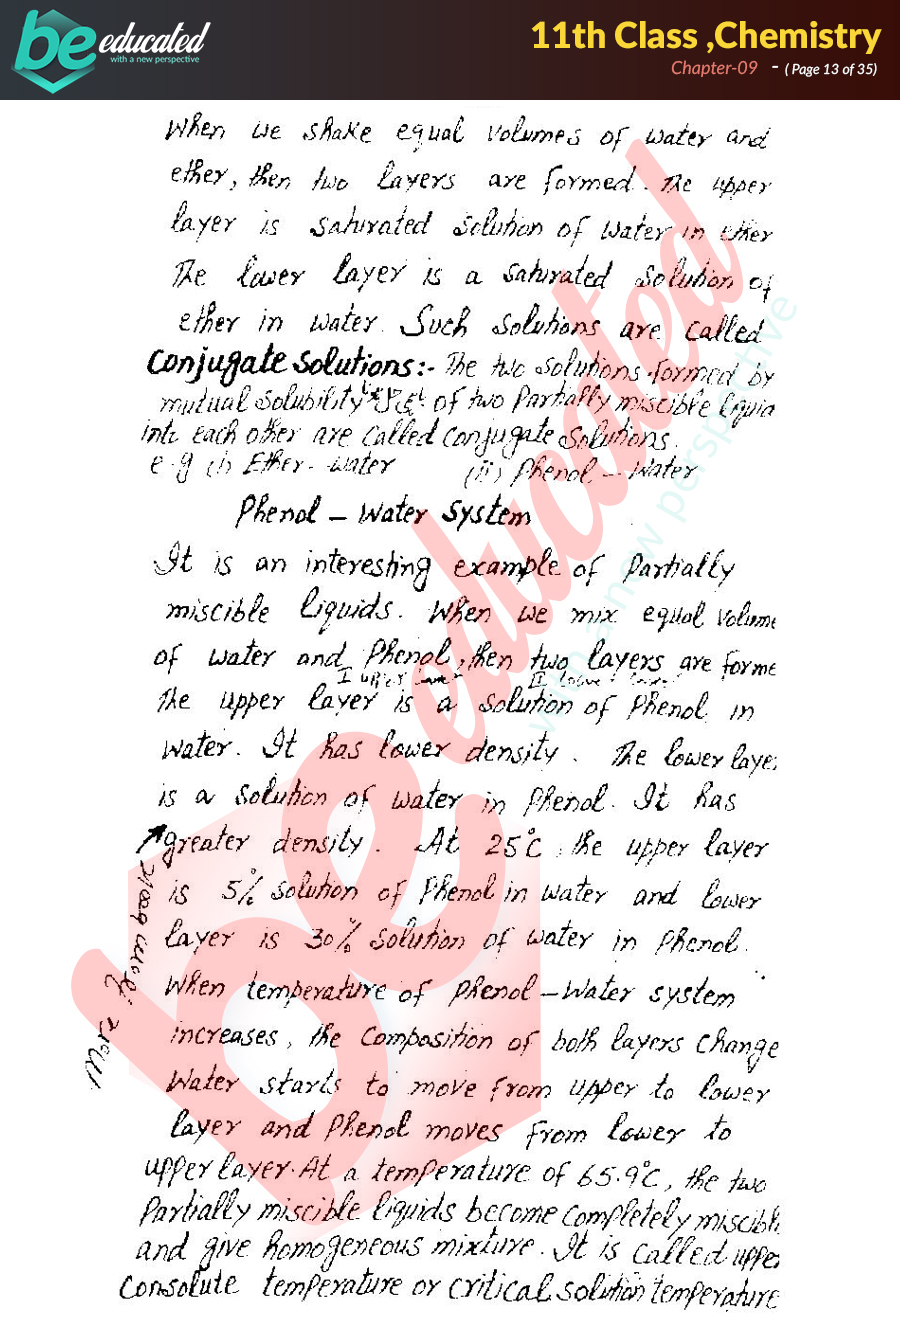 be educated
with a new perspective
11th Class ,Chemistry
Chapter-09 - ( Page 13 of 35)
When we shake equal volumes of water and
ether, then two layers are formed. The upper
layer is saturated solution of water in ether
The lower layer is a saturated solution of
ether in water. Such solutions are called
Conjugate solutions:- The two solutions formed by
mutual solubility of two Partially miscible liquid
into each other are called conjugate solutions.
e.g (i) Ether-water (ii) Phenol - Water
Phenol - Water System
It is an interesting example of Partially
miscible liquids. When we mix equal volume
of water and Phenol, then two layers are forme
I upper layer II lower layer
The upper layer is a solution of Phenol in
water. It has lower density. The lower laye
is a solution of water in Phenol. It has
greater density. At 25°C, the upper layer
is 5% solution of Phenol in water and lower
layer is 30% solution of water in Phenol.
When temperature of Phenol-Water system
increases, the composition of both layers change
Water starts to move from upper to lower
layer and Phenol moves from lower to
upper layer. At a temperature of 65.9°C, the two
Partially miscible liquids become completely miscibl
and give homogeneous mixture. It is called upper
consolute temperature or critical solution temperature
More from book
be educated
with a new perspective